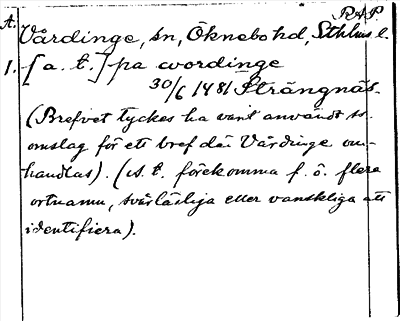 A. RAP
Vårdinge, sn, Öknebo hd, Sthlms l.
1. [a. t.] pa wordinge
30/6 1481 Strängnäs.
(Brefvet tyckes ha varit användt ss.
omslag för ett bref där Vårdinge om-
handlas). (s. t. förekomma f. ö. flera
ortnamn, svårläsliga eller vanskliga att
identifiera).